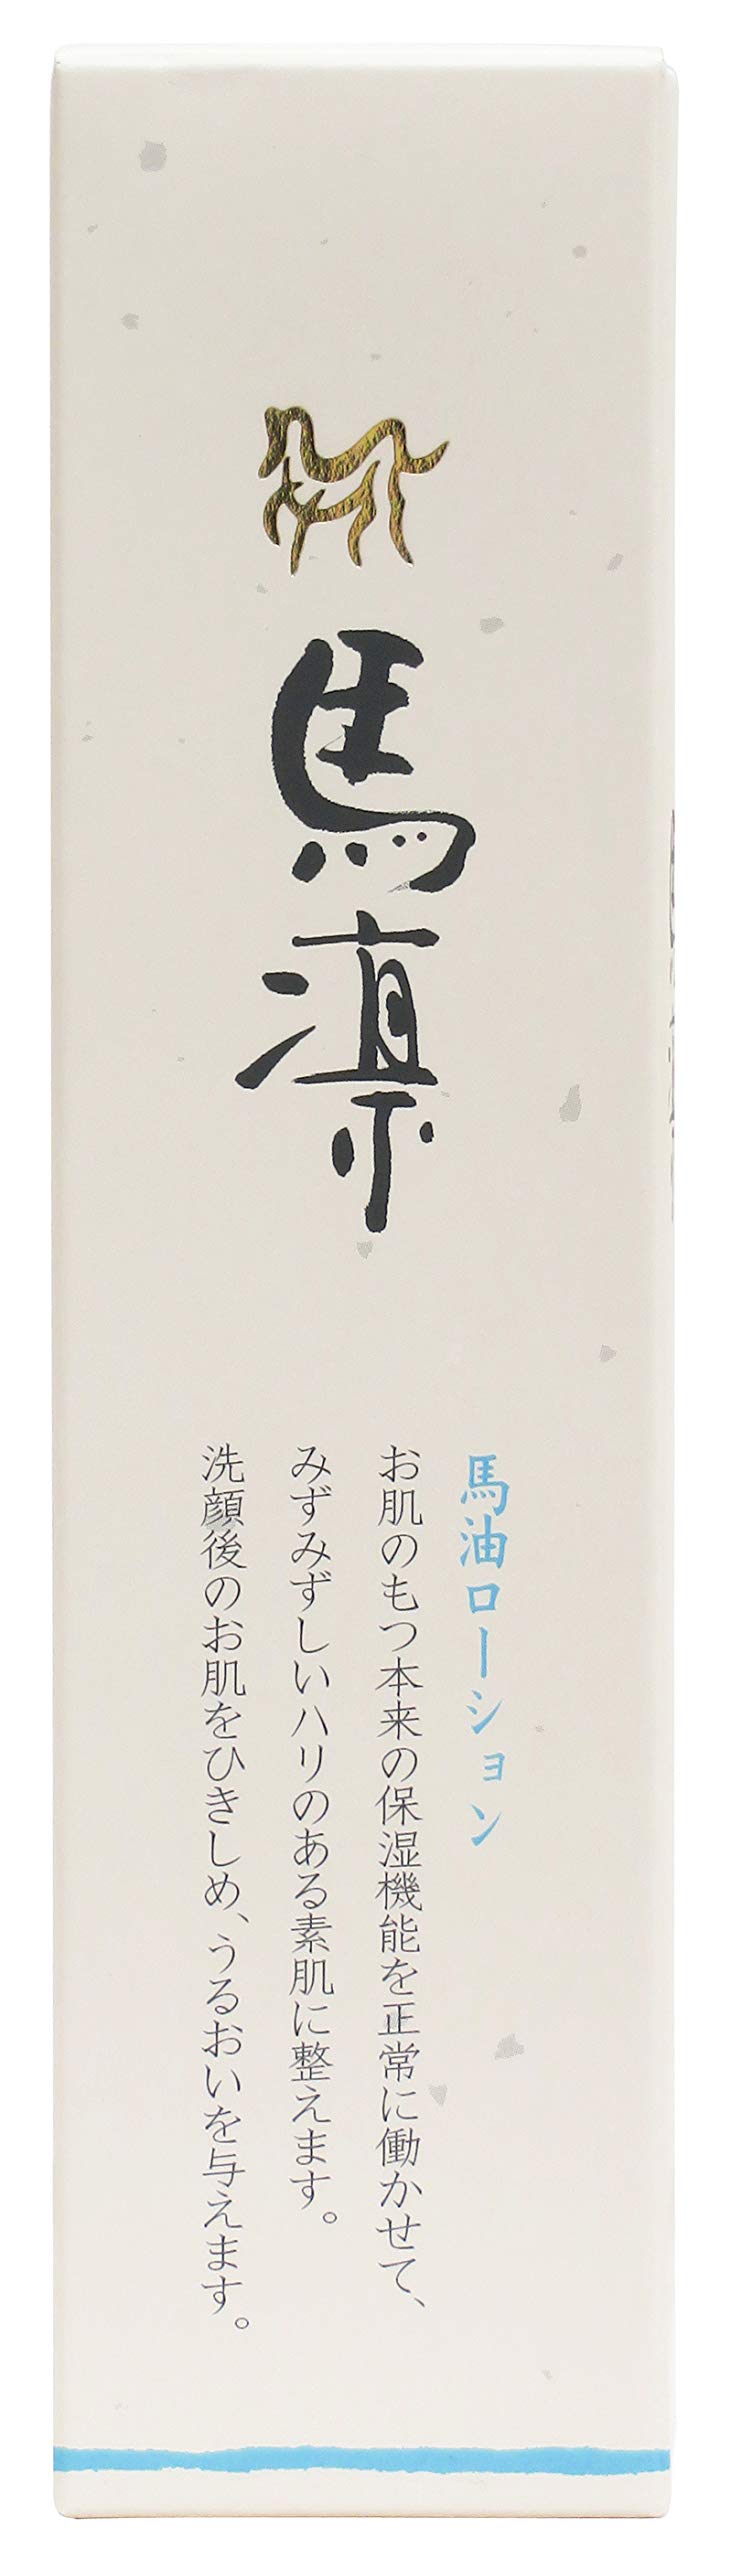 馬凛
馬油ローション
お肌のもつ本来の保湿機能を正常に働かせて、
みずみずしいハリのある素肌に整えます。
洗顔後のお肌をひきしめ、うるおいを与えます。